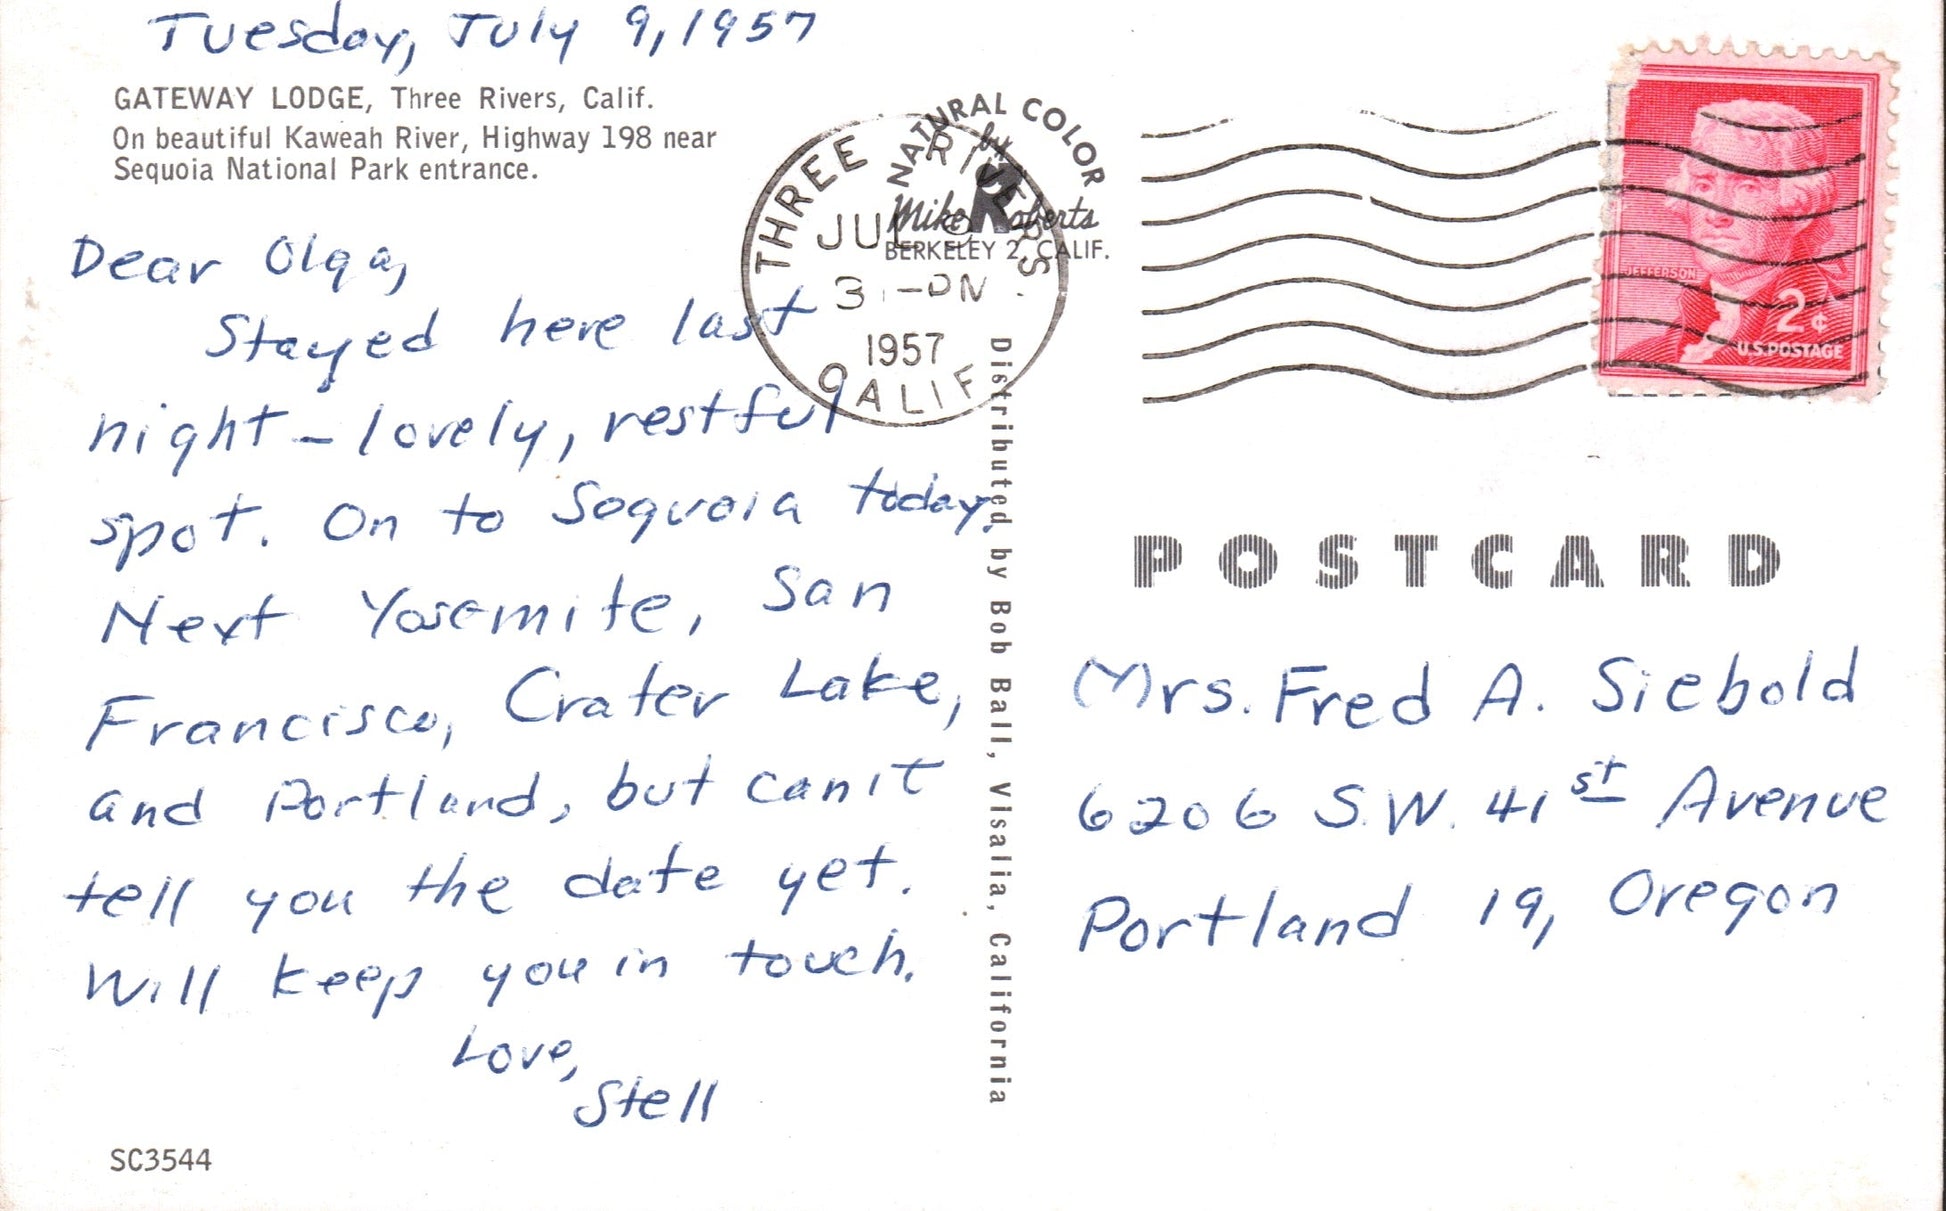 Tuesday, July 9, 1957
GATEWAY LODGE, Three Rivers, Calif.
On beautiful Kaweah River, Highway 198 near
Sequoia National Park entrance.
Dear Olga,
Stayed here last
night – lovely, restful
spot. On to Sequoia today.
Next Yosemite, San
Francisco, Crater Lake,
and Portland, but can't
tell you the date yet.
Will keep you in touch.
Love,
Stell
SC3544
THREE RIVERS
JUL 9
3 - PM
1957
CALIF.
NATURAL COLOR
by
Mike Roberts
BERKELEY 2, CALIF.
Distributed by Bob Ball, Visalia, California
JEFFERSON
2¢
U.S. POSTAGE
POSTCARD
Mrs. Fred A. Siebold
6206 S.W. 41st Avenue
Portland 19, Oregon